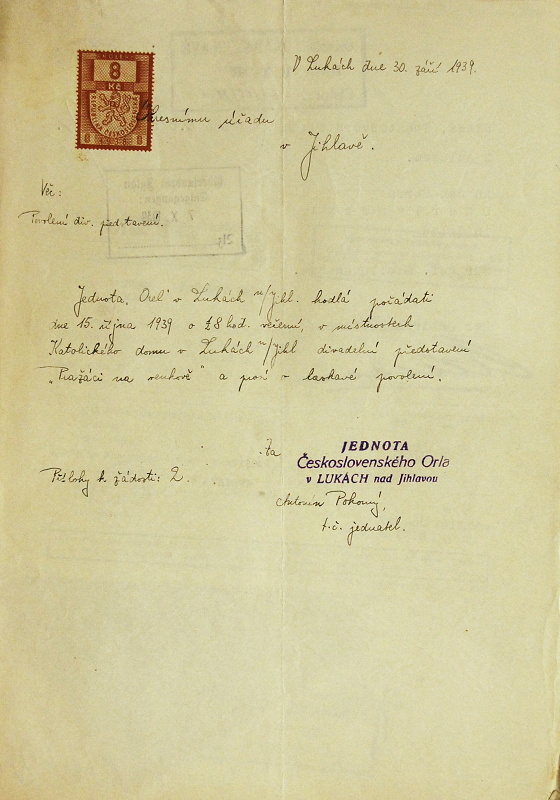 8
Kč
REPUBLIKA ČESKOSLOVENSKÁ
8 8
V Lukách dne 30. září 1939.
Okresnímu úřadu
v Jihlavě.
Věc:
Povolení div. představení.
Jednota "Orel" v Lukách n/Jihl. hodlá pořádati
dne 15. října 1939 o ½8 hod. večerní, v místnostech
Katolického domu v Lukách n/Jihl divadelní představení
„Pražáci na venkově" a prosí o laskavé povolení.
Za
JEDNOTA
Československého Orla
v LUKÁCH nad Jihlavou
Přílohy k žádosti: 2.
Antonín Pokorný,
t.č. jednatel.